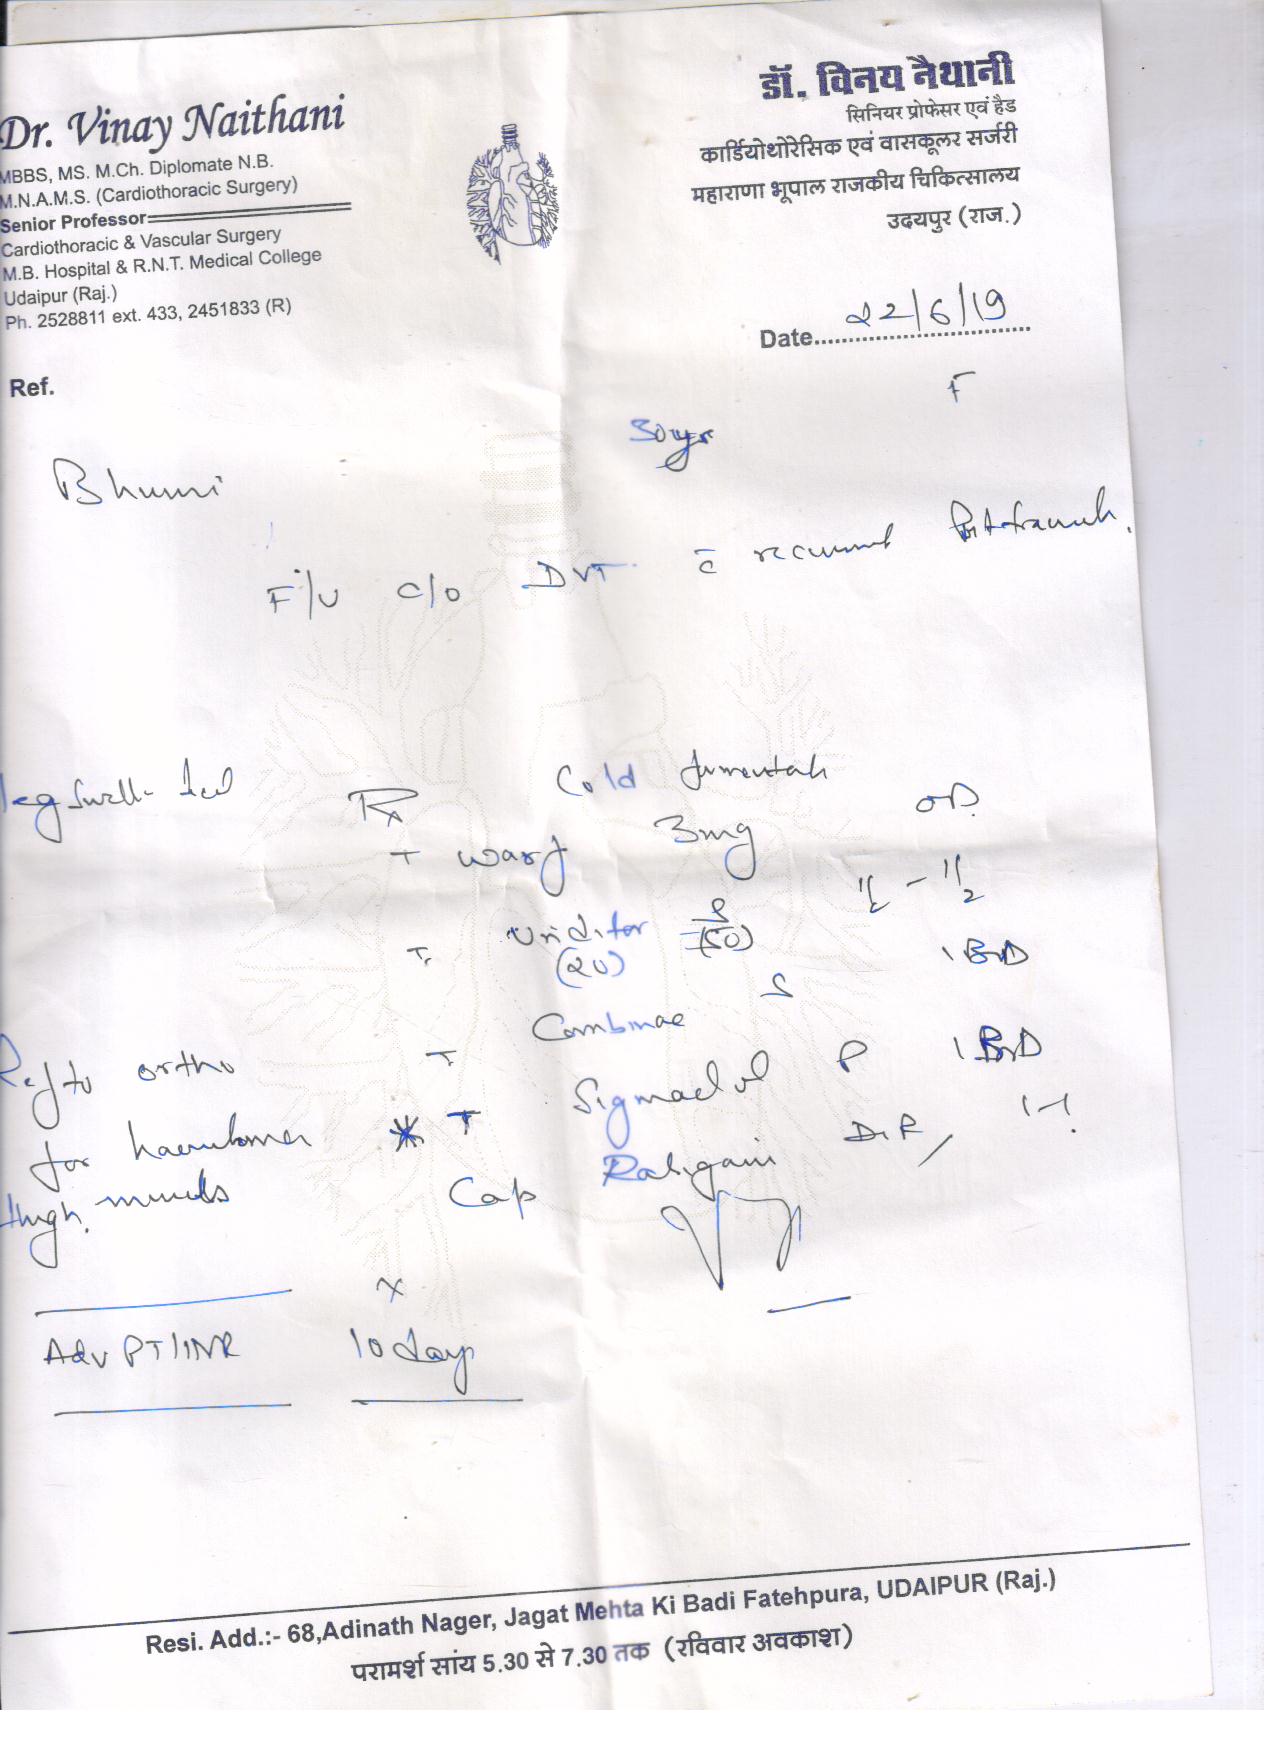 Dr. Vinay Naithani
MBBS, MS. M.Ch. Diplomate N.B.
M.N.A.M.S. (Cardiothoracic Surgery)
Senior Professor
Cardiothoracic & Vascular Surgery
M.B. Hospital & R.N.T. Medical College
Udaipur (Raj.)
Ph. 2528811 ext. 433, 2451833 (R)
डॉ. विनय नैथानी
सिनियर प्रोफेसर एवं हैड
कार्डियोथोरेसिक एवं वासकूलर सर्जरी
महाराणा भूपाल राजकीय चिकित्सालय
उदयपुर (राज.)
Date 22/6/19
Ref.
F
30yr
Bhumi
F/U C/O DVT c̄ recurrent
leg swell
Rx
Cold
T warf 3mg OD
T. (20) (50) 1/2 - 1/2
T Combinae S 1 BD
* T P 1 BD
Cap DSR, 1-1
Ref to ortho
for haematoma
thigh. muscles
x
Adv PT/INR 10 days
Resi. Add.:- 68,Adinath Nager, Jagat Mehta Ki Badi Fatehpura, UDAIPUR (Raj.)
परामर्श सांय 5.30 से 7.30 तक (रविवार अवकाश)